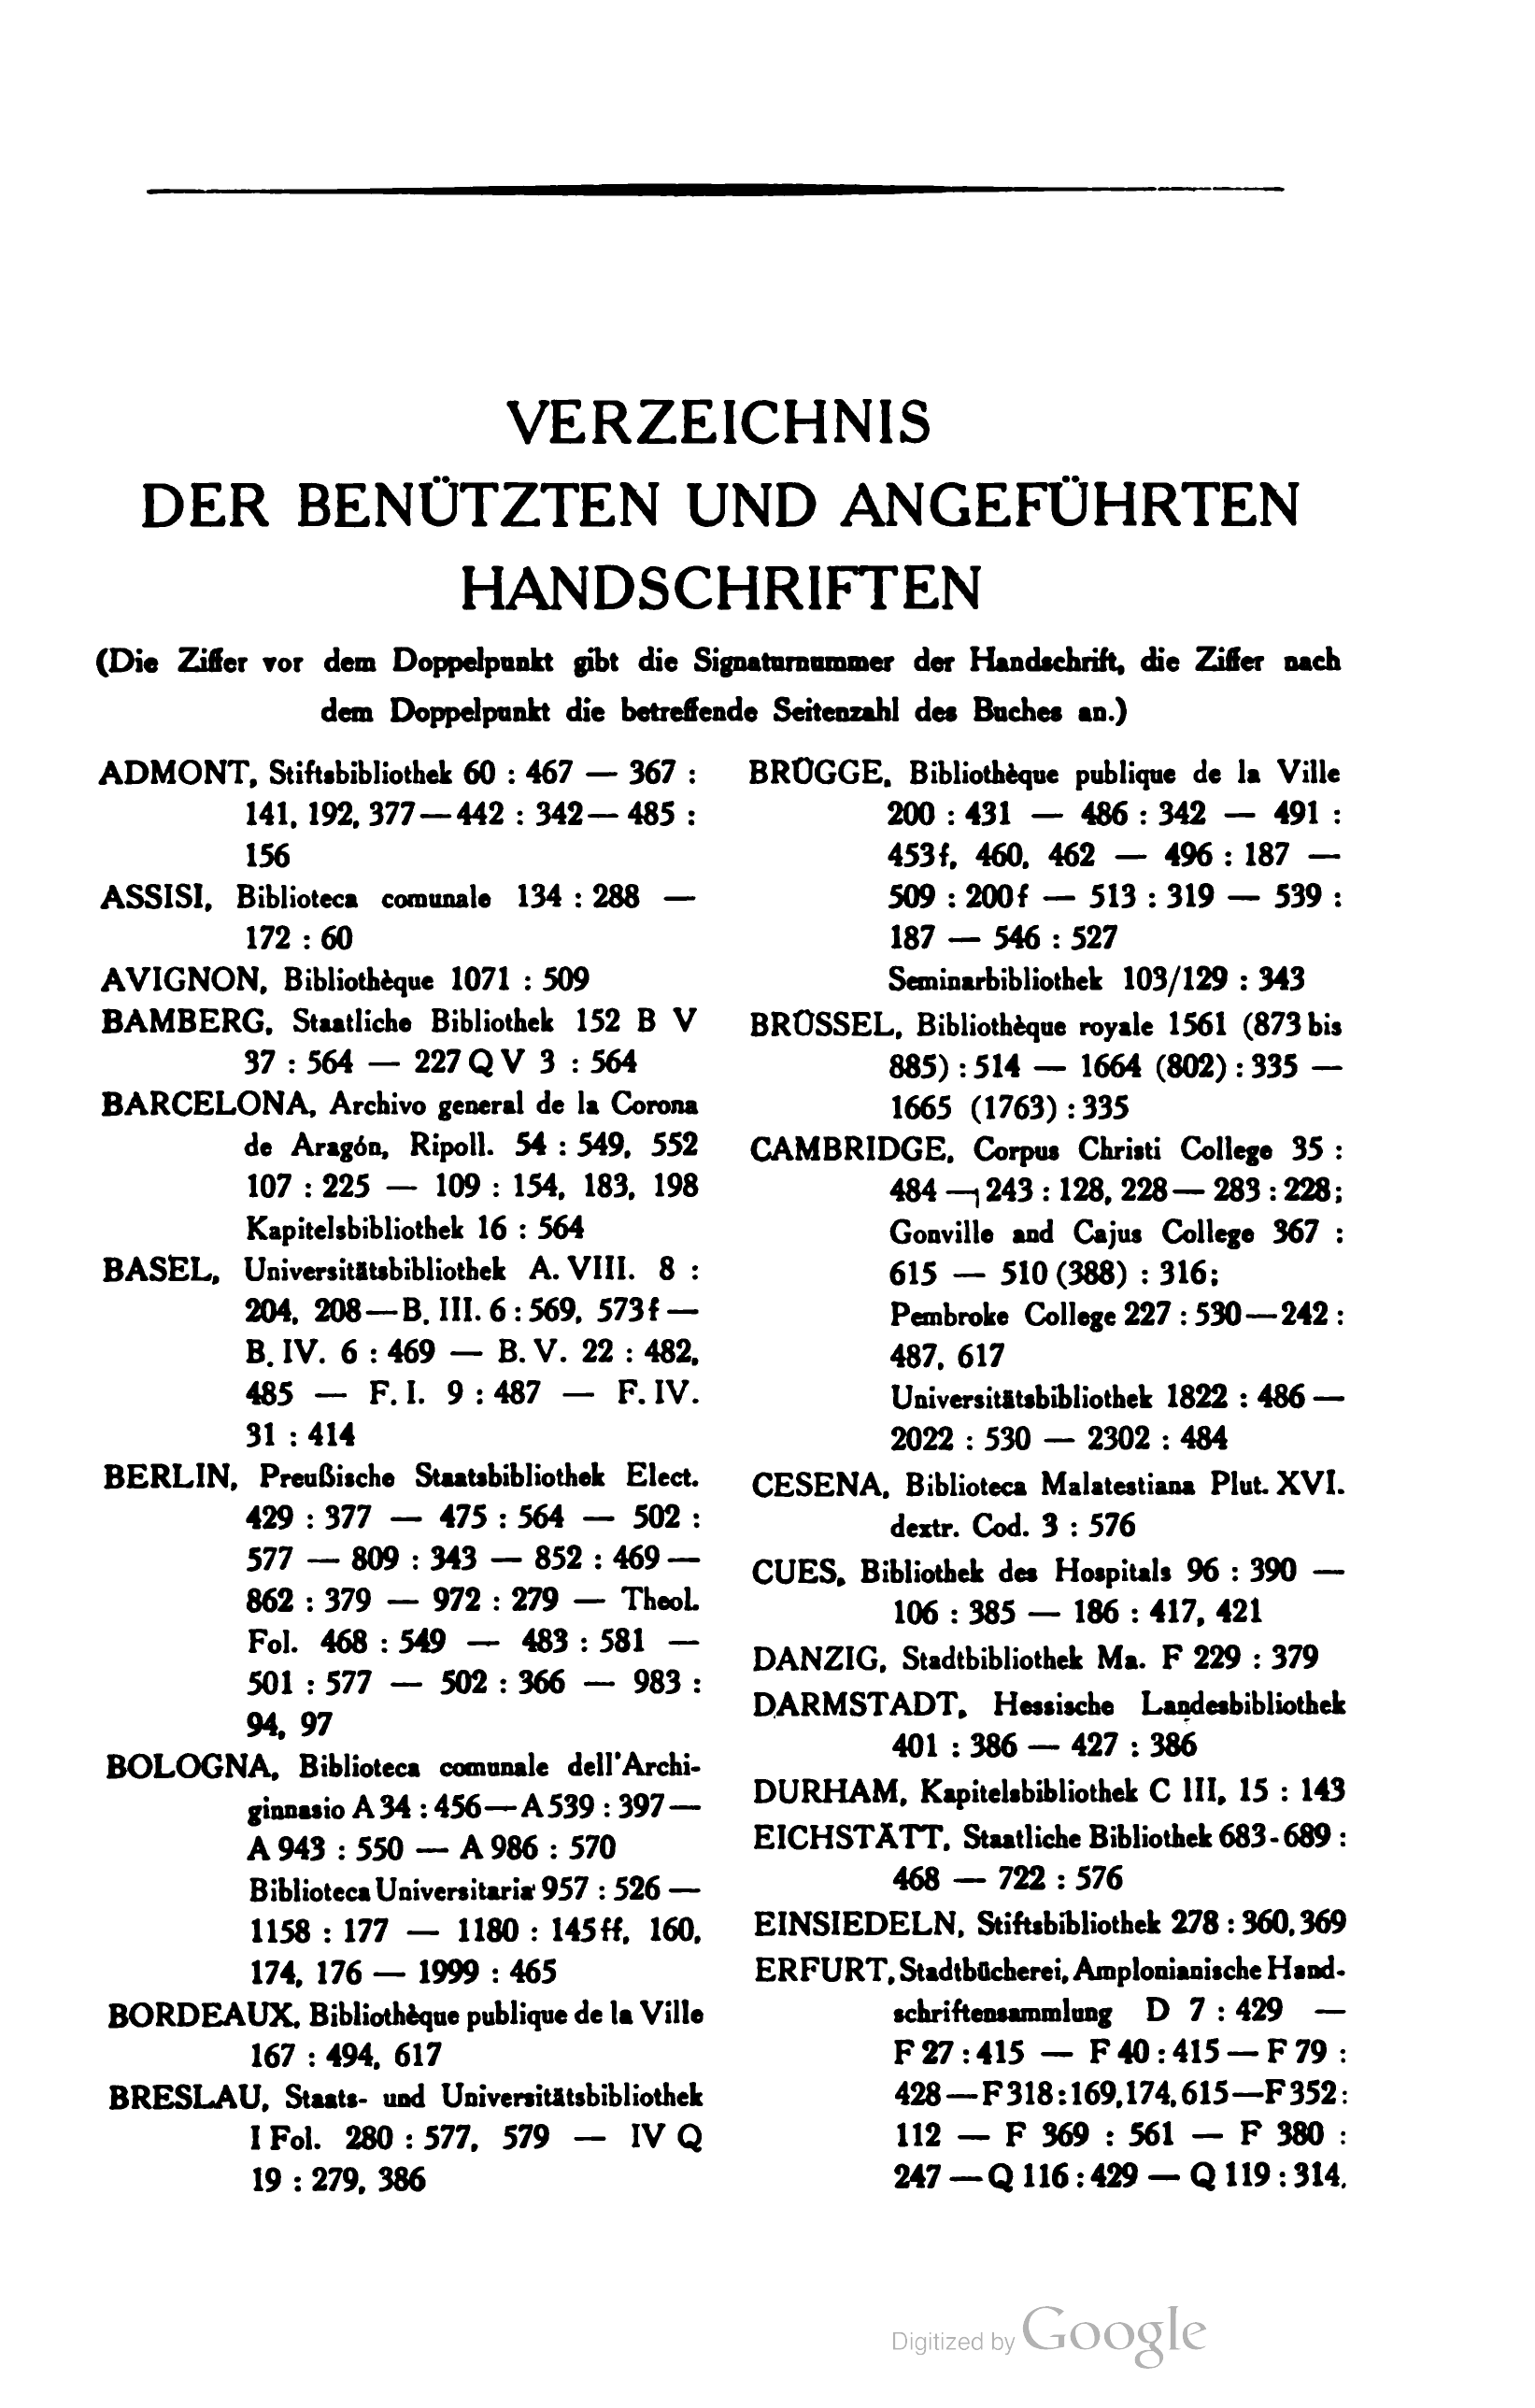 VERZEICHNIS
DER BENÜTZTEN UND ANGEFÜHRTEN
HANDSCHRIFTEN
(Die Ziffer vor dem Doppelpunkt gibt die Signaturnummer der Handschrift, die Ziffer nach
dem Doppelpunkt die betreffende Seitenzahl des Buches an.)
ADMONT, Stiftsbibliothek 60 : 467 — 367 :
141, 192, 377—442 : 342— 485 :
156
ASSISI, Biblioteca comunale 134 : 288 —
172 : 60
AVIGNON, Bibliothèque 1071 : 509
BAMBERG, Staatliche Bibliothek 152 B V
37 : 564 — 227 Q V 3 : 564
BARCELONA, Archivo general de la Corona
de Aragón, Ripoll. 54 : 549, 552
107 : 225 — 109 : 154, 183, 198
Kapitelsbibliothek 16 : 564
BASEL, Universitätsbibliothek A. VIII. 8 :
204, 208—B. III. 6 : 569, 573f —
B. IV. 6 : 469 — B. V. 22 : 482,
485 — F. I. 9 : 487 — F. IV.
31 : 414
BERLIN, Preußische Staatsbibliothek Elect.
429 : 377 — 475 : 564 — 502 :
577 — 809 : 343 — 852 : 469 —
862 : 379 — 972 : 279 — Theol.
Fol. 468 : 549 — 483 : 581 —
501 : 577 — 502 : 366 — 983 :
94, 97
BOLOGNA, Biblioteca comunale dell'Archi-
ginnasio A 34 : 456—A 539 : 397—
A 943 : 550 — A 986 : 570
Biblioteca Universitaria 957 : 526 —
1158 : 177 — 1180 : 145 ff, 160,
174, 176 — 1999 : 465
BORDEAUX, Bibliothèque publique de la Ville
167 : 494, 617
BRESLAU, Staats- und Universitätsbibliothek
I Fol. 280 : 577, 579 — IV Q
19 : 279, 386
BRÜGGE, Bibliothèque publique de la Ville
200 : 431 — 486 : 342 — 491 :
453 f, 460, 462 — 496 : 187 —
509 : 200 f — 513 : 319 — 539 :
187 — 546 : 527
Seminarbibliothek 103/129 : 343
BRÜSSEL, Bibliothèque royale 1561 (873 bis
885) : 514 — 1664 (802) : 335 —
1665 (1763) : 335
CAMBRIDGE, Corpus Christi College 35 :
484 — 243 : 128, 228 — 283 : 228;
Gonville and Cajus College 367 :
615 — 510 (388) : 316;
Pembroke College 227 : 530—242 :
487, 617
Universitätsbibliothek 1822 : 486 —
2022 : 530 — 2302 : 484
CESENA, Biblioteca Malatestiana Plut. XVI.
dextr. Cod. 3 : 576
CUES, Bibliothek des Hospitals 96 : 390 —
106 : 385 — 186 : 417, 421
DANZIG, Stadtbibliothek Ma. F 229 : 379
DARMSTADT, Hessische Landesbibliothek
401 : 386 — 427 : 386
DURHAM, Kapitelsbibliothek C III, 15 : 143
EICHSTÄTT, Staatliche Bibliothek 683-689 :
468 — 722 : 576
EINSIEDELN, Stiftsbibliothek 278 : 360, 369
ERFURT, Stadtbücherei, Amplonianische Hand-
schriftensammlung D 7 : 429 —
F 27 : 415 — F 40 : 415 — F 79 :
428 — F 318 : 169, 174, 615—F 352 :
112 — F 369 : 561 — F 380 :
247 — Q 116 : 429 — Q 119 : 314,
Digitized by Google